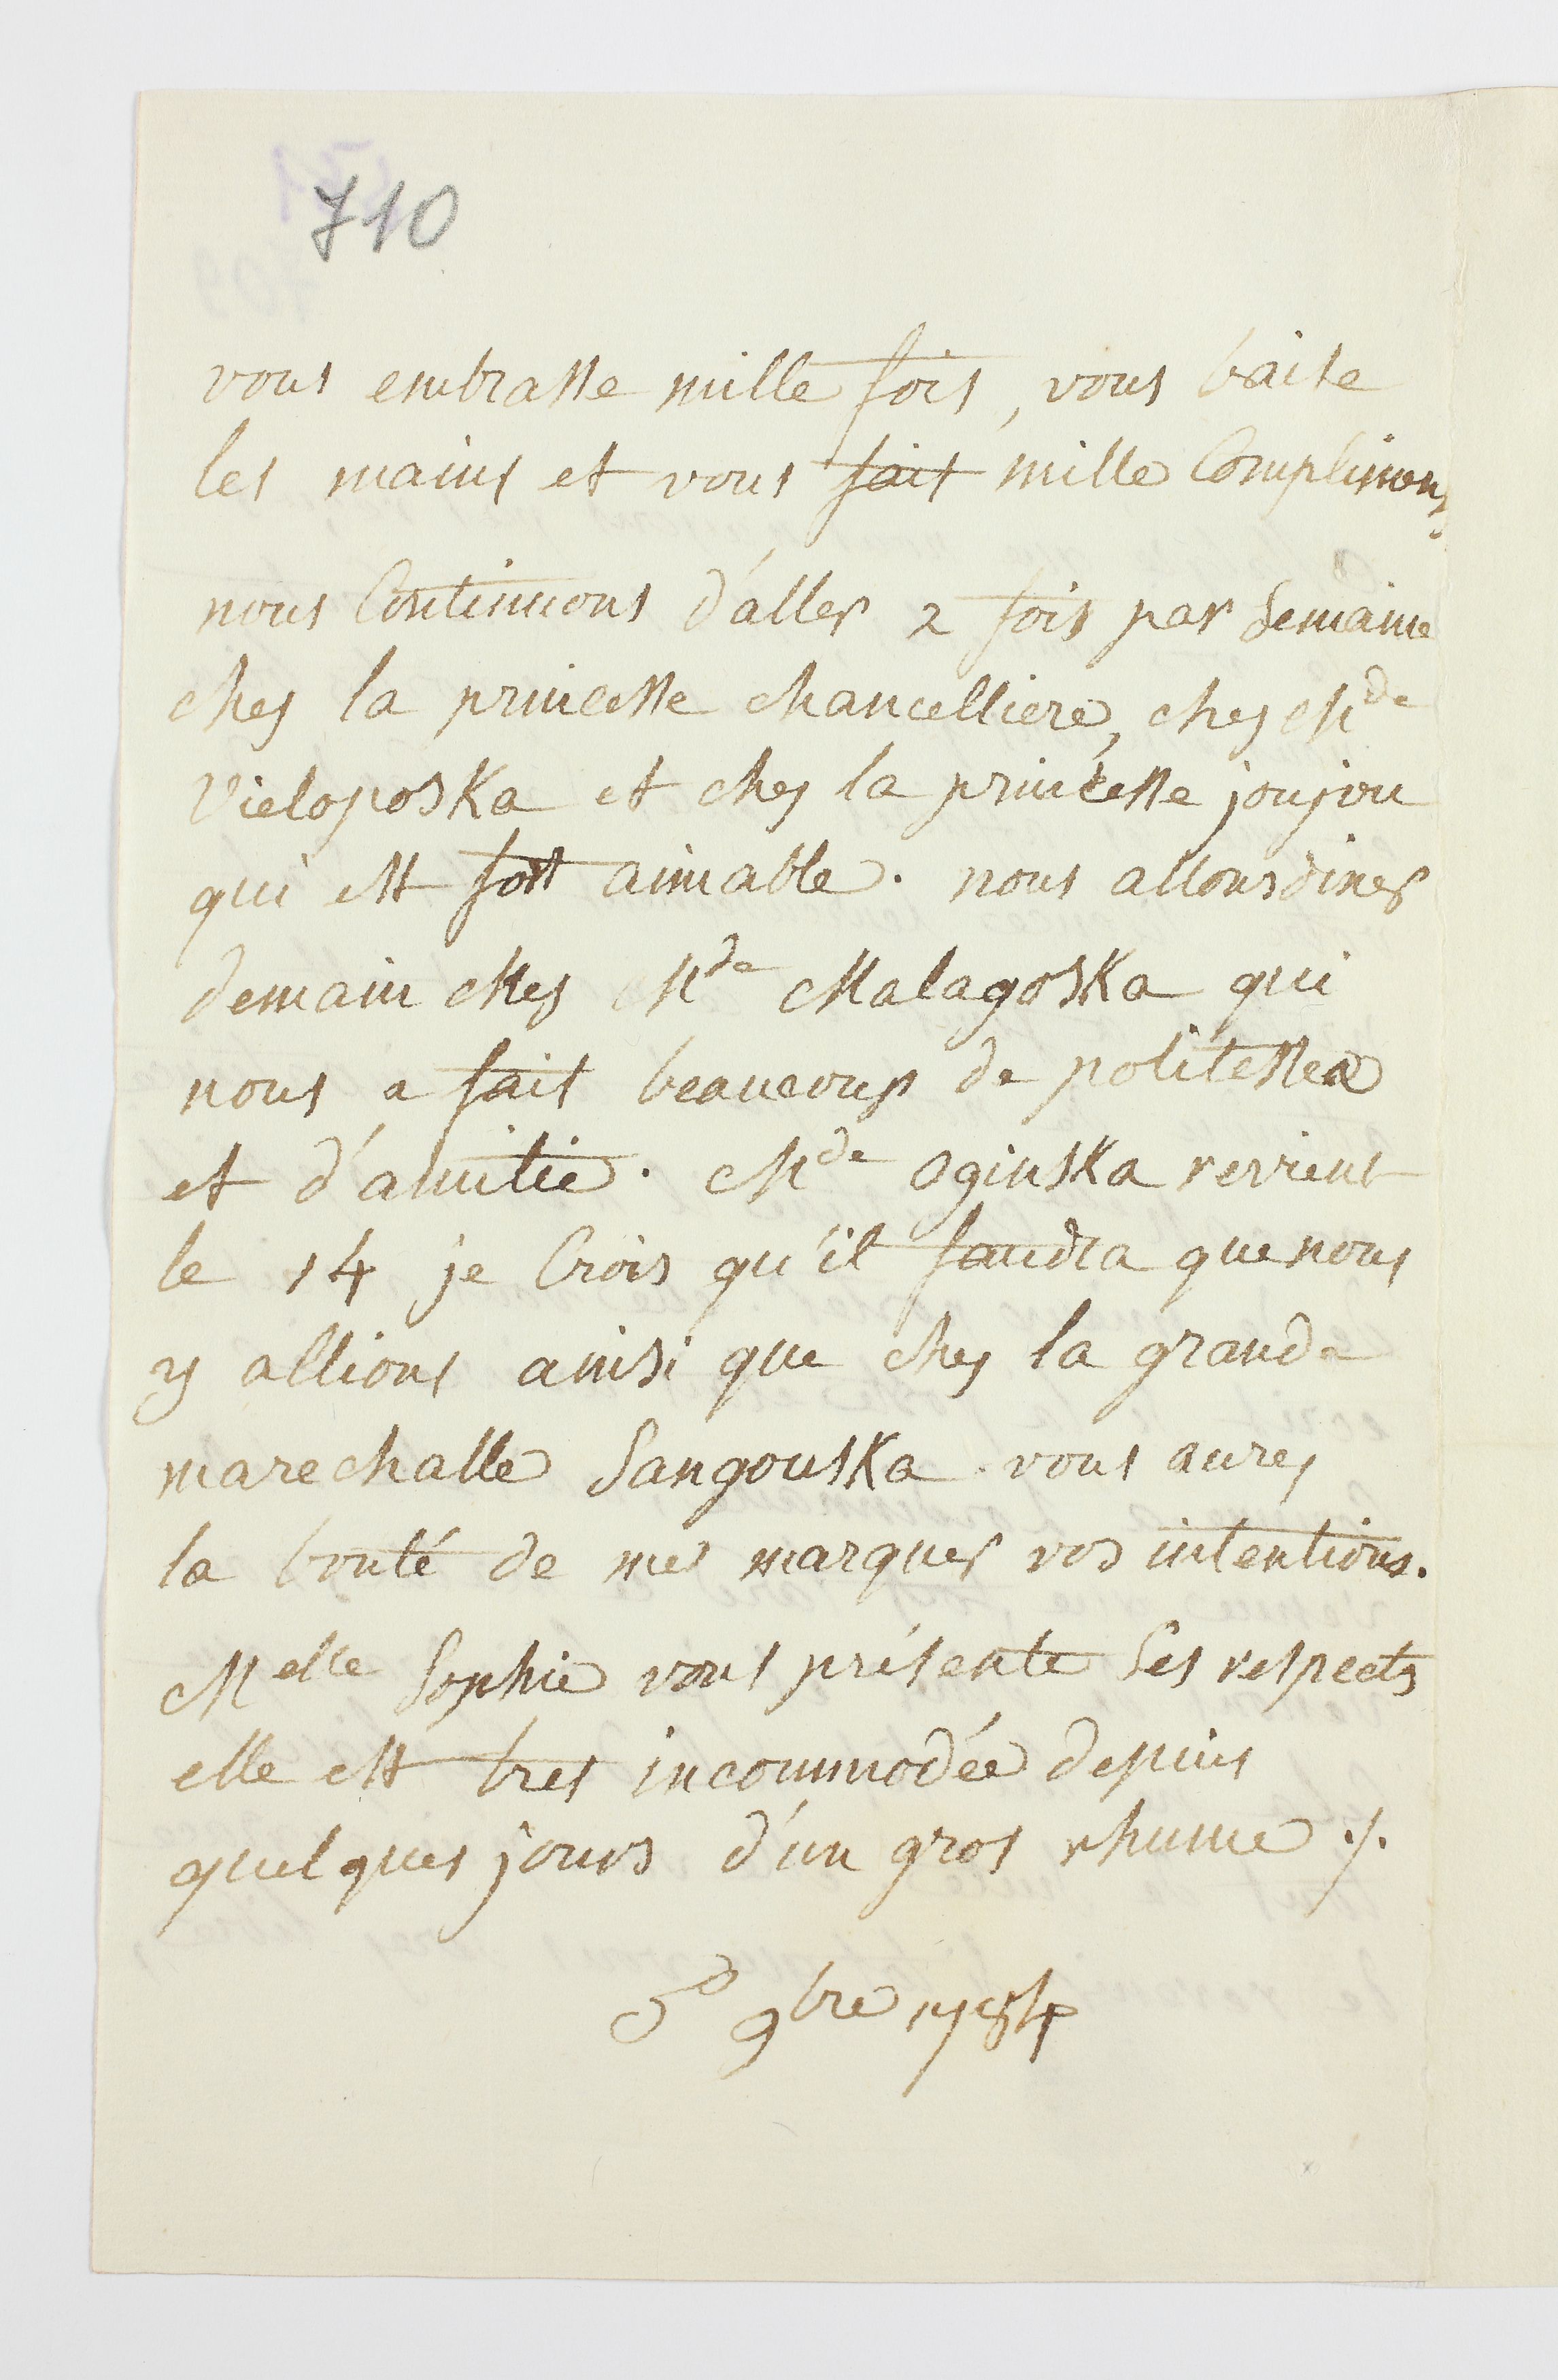 710
vous embrasse mille fois, vous baise
les mains et vous fait mille Complimens
nous Continuons d'aller 2 fois par Semaine
ches la princesse chancelliere, ches Mde
Vieloposka et ches la princesse joujou
qui est fort aimable. nous allons diner
demain ches Mde Malagoska qui
nous a fait beaucoup de politesse
et d'amitié. Mde Oginska revient
le 14 je Crois qu'il faudra que nous
y allions ainsi que ches la grande
marechalle Sangouska. vous aures
la bonté de me marquer vos intentions.
Melle Sophie vous présente Ses respects
elle est tres incommodée depuis
quelques jours d'un gros rhume ./.
9bre 1784